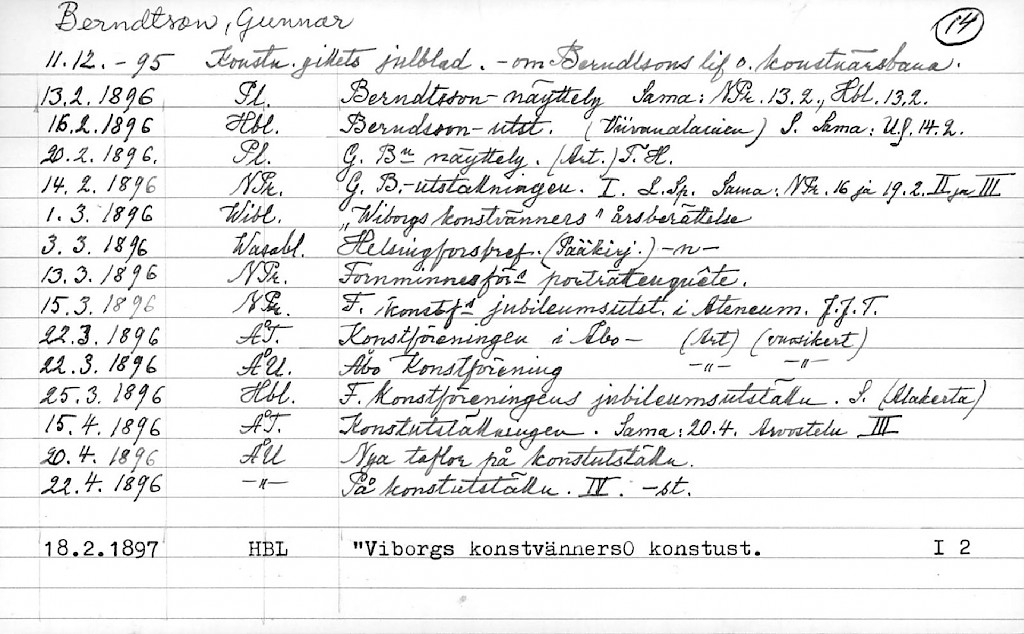 Berndtson, Gunnar 14
11.12. -95 Konstn. gillets julblad. - om Berndtsons lif o. konstnärsbana.
13.2.1896 Pl. Berndtsson-näyttely Sama: NPr. 13.2., Hbl. 13.2.
16.2.1896 Hbl. Berndsson-utst. (Viivanalainen) S. Sama: U.S. 14.2.
20.2.1896. Pl. G. Bn näyttely. (Art.) T.H.
14.2.1896 NPr. G. B.-utställningen. I. L.Sp. Sama: NPr. 16 ja 19.2. II ja III
1.3.1896 Wibl. "Wiborgs konstvänners" årsberättelse
3.3.1896 Wasabl. Helsingforsbref. (Pääkirj.) -n-
13.3.1896 NPr. Fornminnesförs porträttenquête.
15.3.1896 NPr. F. konstfs jubileumsutst. i Ateneum. J.J.T.
22.3.1896 ÅT. Konstföreningen i Åbo - (Art) (vuosikert)
22.3.1896 ÅU. Åbo Konstförening -"- -"-
25.3.1896 Hbl. F. Konstföreningens jubileumsutställn. S. (Alakerta)
15.4.1896 ÅT. Konstutställningen. Sama: 20.4. Arvostelu III
20.4.1896 ÅU Nya taflor på konstutställn.
22.4.1896 -"- På konstutställn. IV. -st.
18.2.1897 HBL "Viborgs konstvännersO konstust. I 2